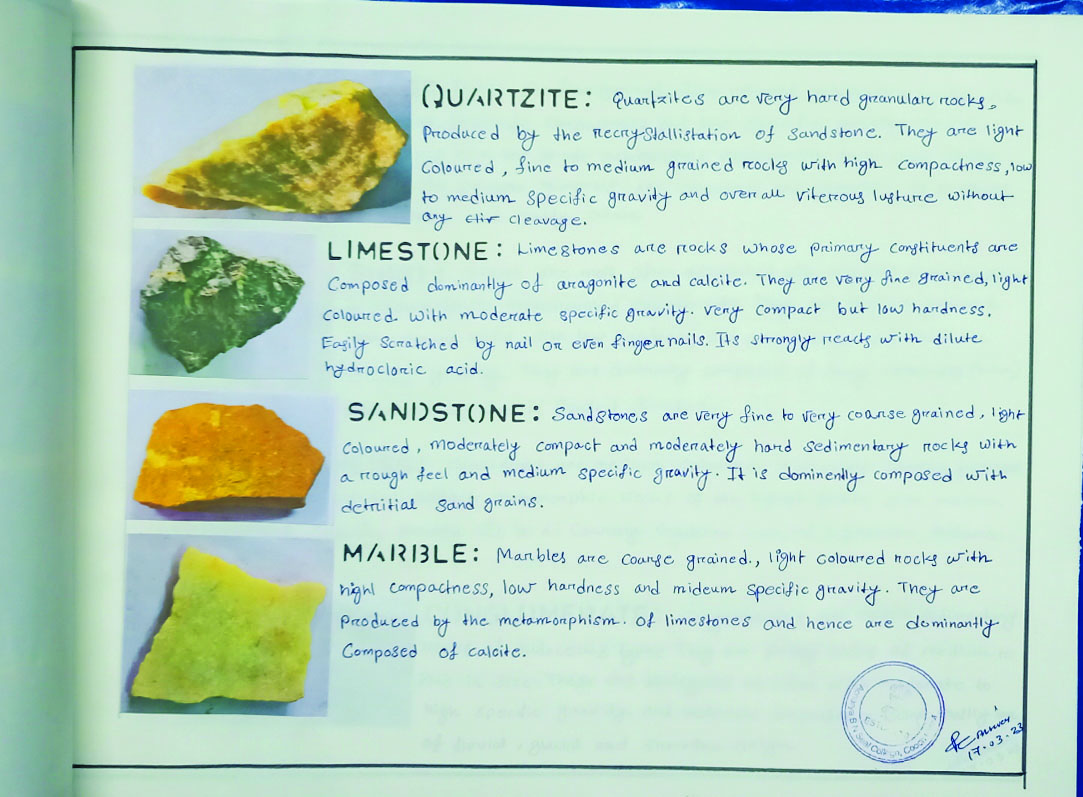 QUARTZITE: Quartzites are very hard granular rocks,
Produced by the recrystallistation of sandstone. They are light
Coloured, fine to medium grained rocks with high compactness, low
to medium specific gravity and overall viterrous lusture without
any cleavage.
LIMESTONE: Limestones are rocks whose primary constituents are
Composed dominantly of aragonite and calcite. They are very fine grained, light
Coloured. with moderate specific gravity. very compact but low hardness.
Easily Scratched by nail or even fingernails. Its strongly reacts with dilute
hydrocloric acid.
SANDSTONE: Sandstones are very fine to very coarse grained, light
Coloured, moderately compact and moderately hard sedimentary rocks with
a rough feel and medium specific gravity. It is dominently composed with
detritial sand grains.
MARBLE: Marbles are coarse grained., light coloured rocks with
highl compactness, low hardness and mideum specific gravity. They are
Produced by the metamorphism. of limestones and hence are dominantly
Composed of calcite.
17.03.23